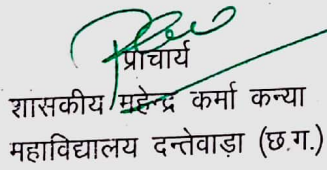 प्राचार्य
शासकीय महेन्द्र कर्मा कन्या
महाविद्यालय दन्तेवाड़ा (छ.ग.)